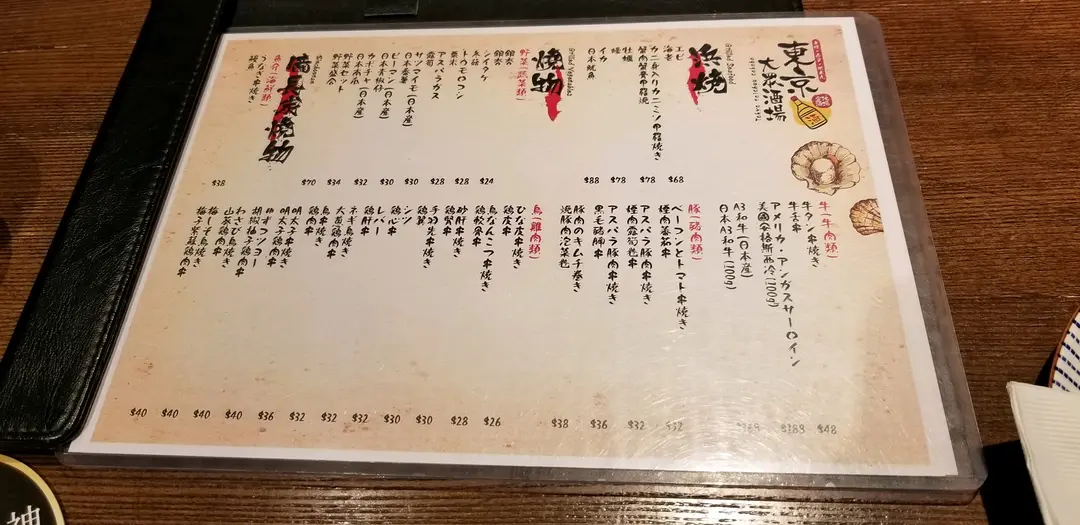 東京
大衆酒場
浜焼
Grilled Seafood
エビ
海老
$68
カニ身入りカニミソ甲羅焼き
蟹肉蟹膏甲羅燒
$78
牡蠣
$78
イカ
日本魷魚
$88
焼物
Grilled Vegetables
野菜(蔬菜類)
銀杏
銀杏
$24
シイタケ
冬菇
$28
トウモロコシ
粟米
$28
アスパラガス
露筍
$30
サツマイモ(日本産)
日本番薯
$30
ピーマン(日本産)
日本青椒仔
$32
カボチャ(日本産)
日本南瓜
$34
野菜セット
野菜盛合
$70
備長炭焼物
魚介(海鮮類)
うなぎ串焼き
鰻魚串
$38
牛(牛肉類)
牛タン串焼き
牛舌串
$48
アメリカ・アンガスサーロイン
美國安格斯西冷(100g)
$188
A3和牛(日本産)
日本A3和牛(100g)
豚(豬肉類)
ベーコンとトマト串焼き
煙肉蕃茄串
$32
アスパラ豚肉串焼き
煙肉露筍卷串
$32
アスパラ豚肉串焼き
黑毛豬腩串
$36
豚肉のキムチ巻き
燒豚肉泡菜卷
$38
鳥(雞肉類)
ひな皮串焼き
鶏皮串
$26
鳥なんこつ串焼き
鶏軟骨串
$28
砂肝串焼き
鶏腎串
$30
手羽先串焼き
鶏翼串
$30
シン
鶏心串
$32
レバー
鶏肝串
$32
ネギ鳥焼き
大蔥鶏肉串
$32
鳥串焼き
鶏肉串
$36
明太子串焼き
明太子鶏肉串
$40
ゆずコショー
胡椒柚子鶏肉串
$40
わさび鳥焼き
山葵鶏肉串
$40
梅しそ鳥焼き
梅子紫蘇鶏肉串
$40
神